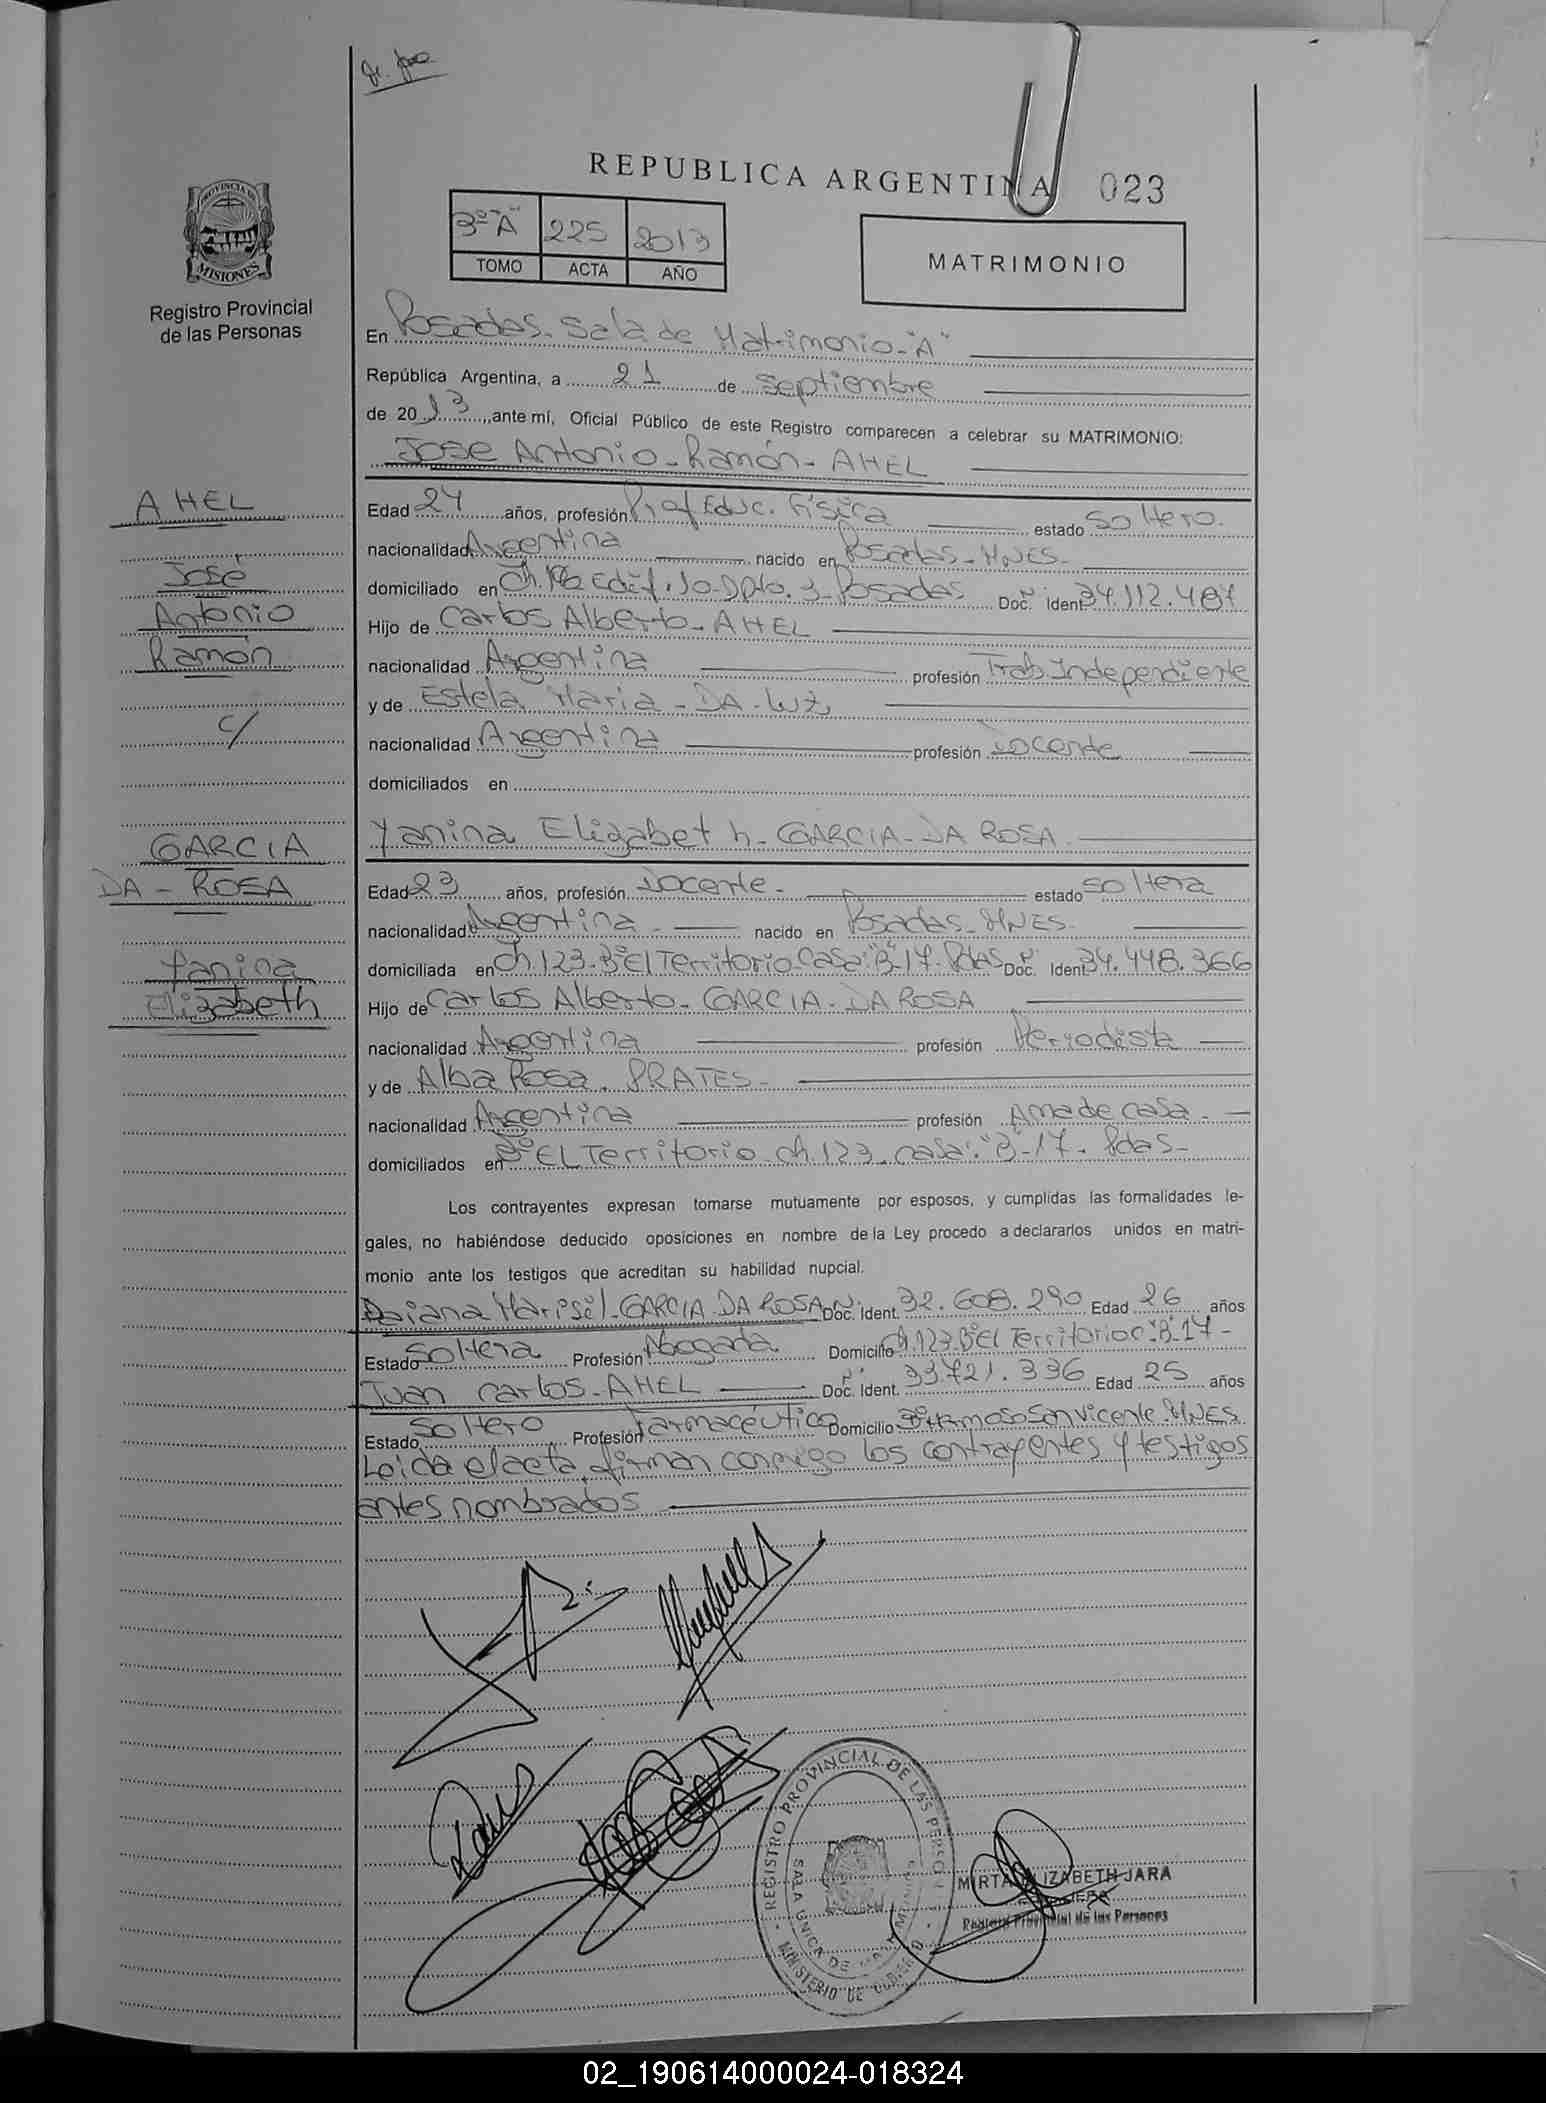 REPUBLICA ARGENTINA 023
3º "A" 225 2013
TOMO ACTA AÑO
MATRIMONIO
PROVINCIA DE
MISIONES
Registro Provincial
de las Personas
En Posadas. Sala de Matrimonio "A"
República Argentina, a 21 de septiembre
de 2013, ante mí, Oficial Público de este Registro comparecen a celebrar su MATRIMONIO:
Jose Antonio - Ramón - AHEL
Edad 24 años, profesión Prof Educ. Física estado soltero.
nacionalidad Argentina nacido en Posadas - MNES.
domiciliado en Edif. 10 Dpto. 3 - Posadas Doc. Ident 34.112.487
Hijo de Carlos Alberto - AHEL
nacionalidad Argentina profesión Trab Independiente
y de Estela Maria - DA - Luz
nacionalidad Argentina profesión Docente
domiciliados en
Yanina Elizabet h - GARCIA - DA ROSA
Edad 23 años, profesión Docente - estado soltera
nacionalidad Argentina - nacido en Posadas - MNES.
domiciliada en Ch. 123 - Bº El Territorio Casa "B" 17 - Pdas Doc. Ident 34.448.366
Hijo de Carlos Alberto - GARCIA - DA ROSA
nacionalidad Argentina profesión Periodista
y de Alba Rosa. PRATES -
nacionalidad Argentina profesión Ama de casa.
domiciliados en Bº EL Territorio ch. 123 casa: "B" 17 - Pdas -
Los contrayentes expresan tomarse mutuamente por esposos, y cumplidas las formalidades le-
gales, no habiéndose deducido oposiciones en nombre de la Ley procedo a declararlos unidos en matri-
monio ante los testigos que acreditan su habilidad nupcial.
Daiana Marisel - GARCIA - DA ROSA Doc. Ident. 32.608.290 Edad 26 años
Estado soltera Profesión Abogada Domicilio Ch. 123 Bº El Territorio C "B" 17 -
Juan Carlos - AHEL Doc. Ident. 33.721.336 Edad 25 años
Estado soltero Profesión Farmacéutico Domicilio Bº Hermoso San Vicente MNES
Leida el acta, firman conmigo los contrayentes y testigos
antes nombrados
AHEL
José
Antonio
Ramón
c/
GARCIA
DA - ROSA
Yanina
Elizabeth
REGISTRO PROVINCIAL DE LAS PERSONAS
SALA UNICA DE
MINISTERIO DE GOBIERNO
MIRTA ELIZABETH JARA
Registro Provincial de las Personas
02_190614000024-018324